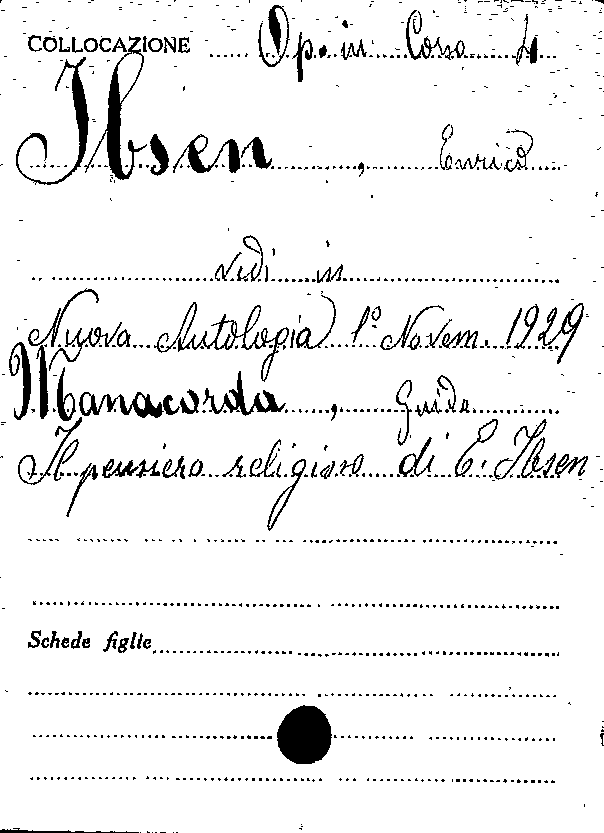 COLLOCAZIONE Op. in Corso 4
Ibsen, Enrico
vedi in
Nuova Antologia 1º Novem. 1929
Manacorda, Guido
Il pensiero religioso di E. Ibsen
Schede figlie